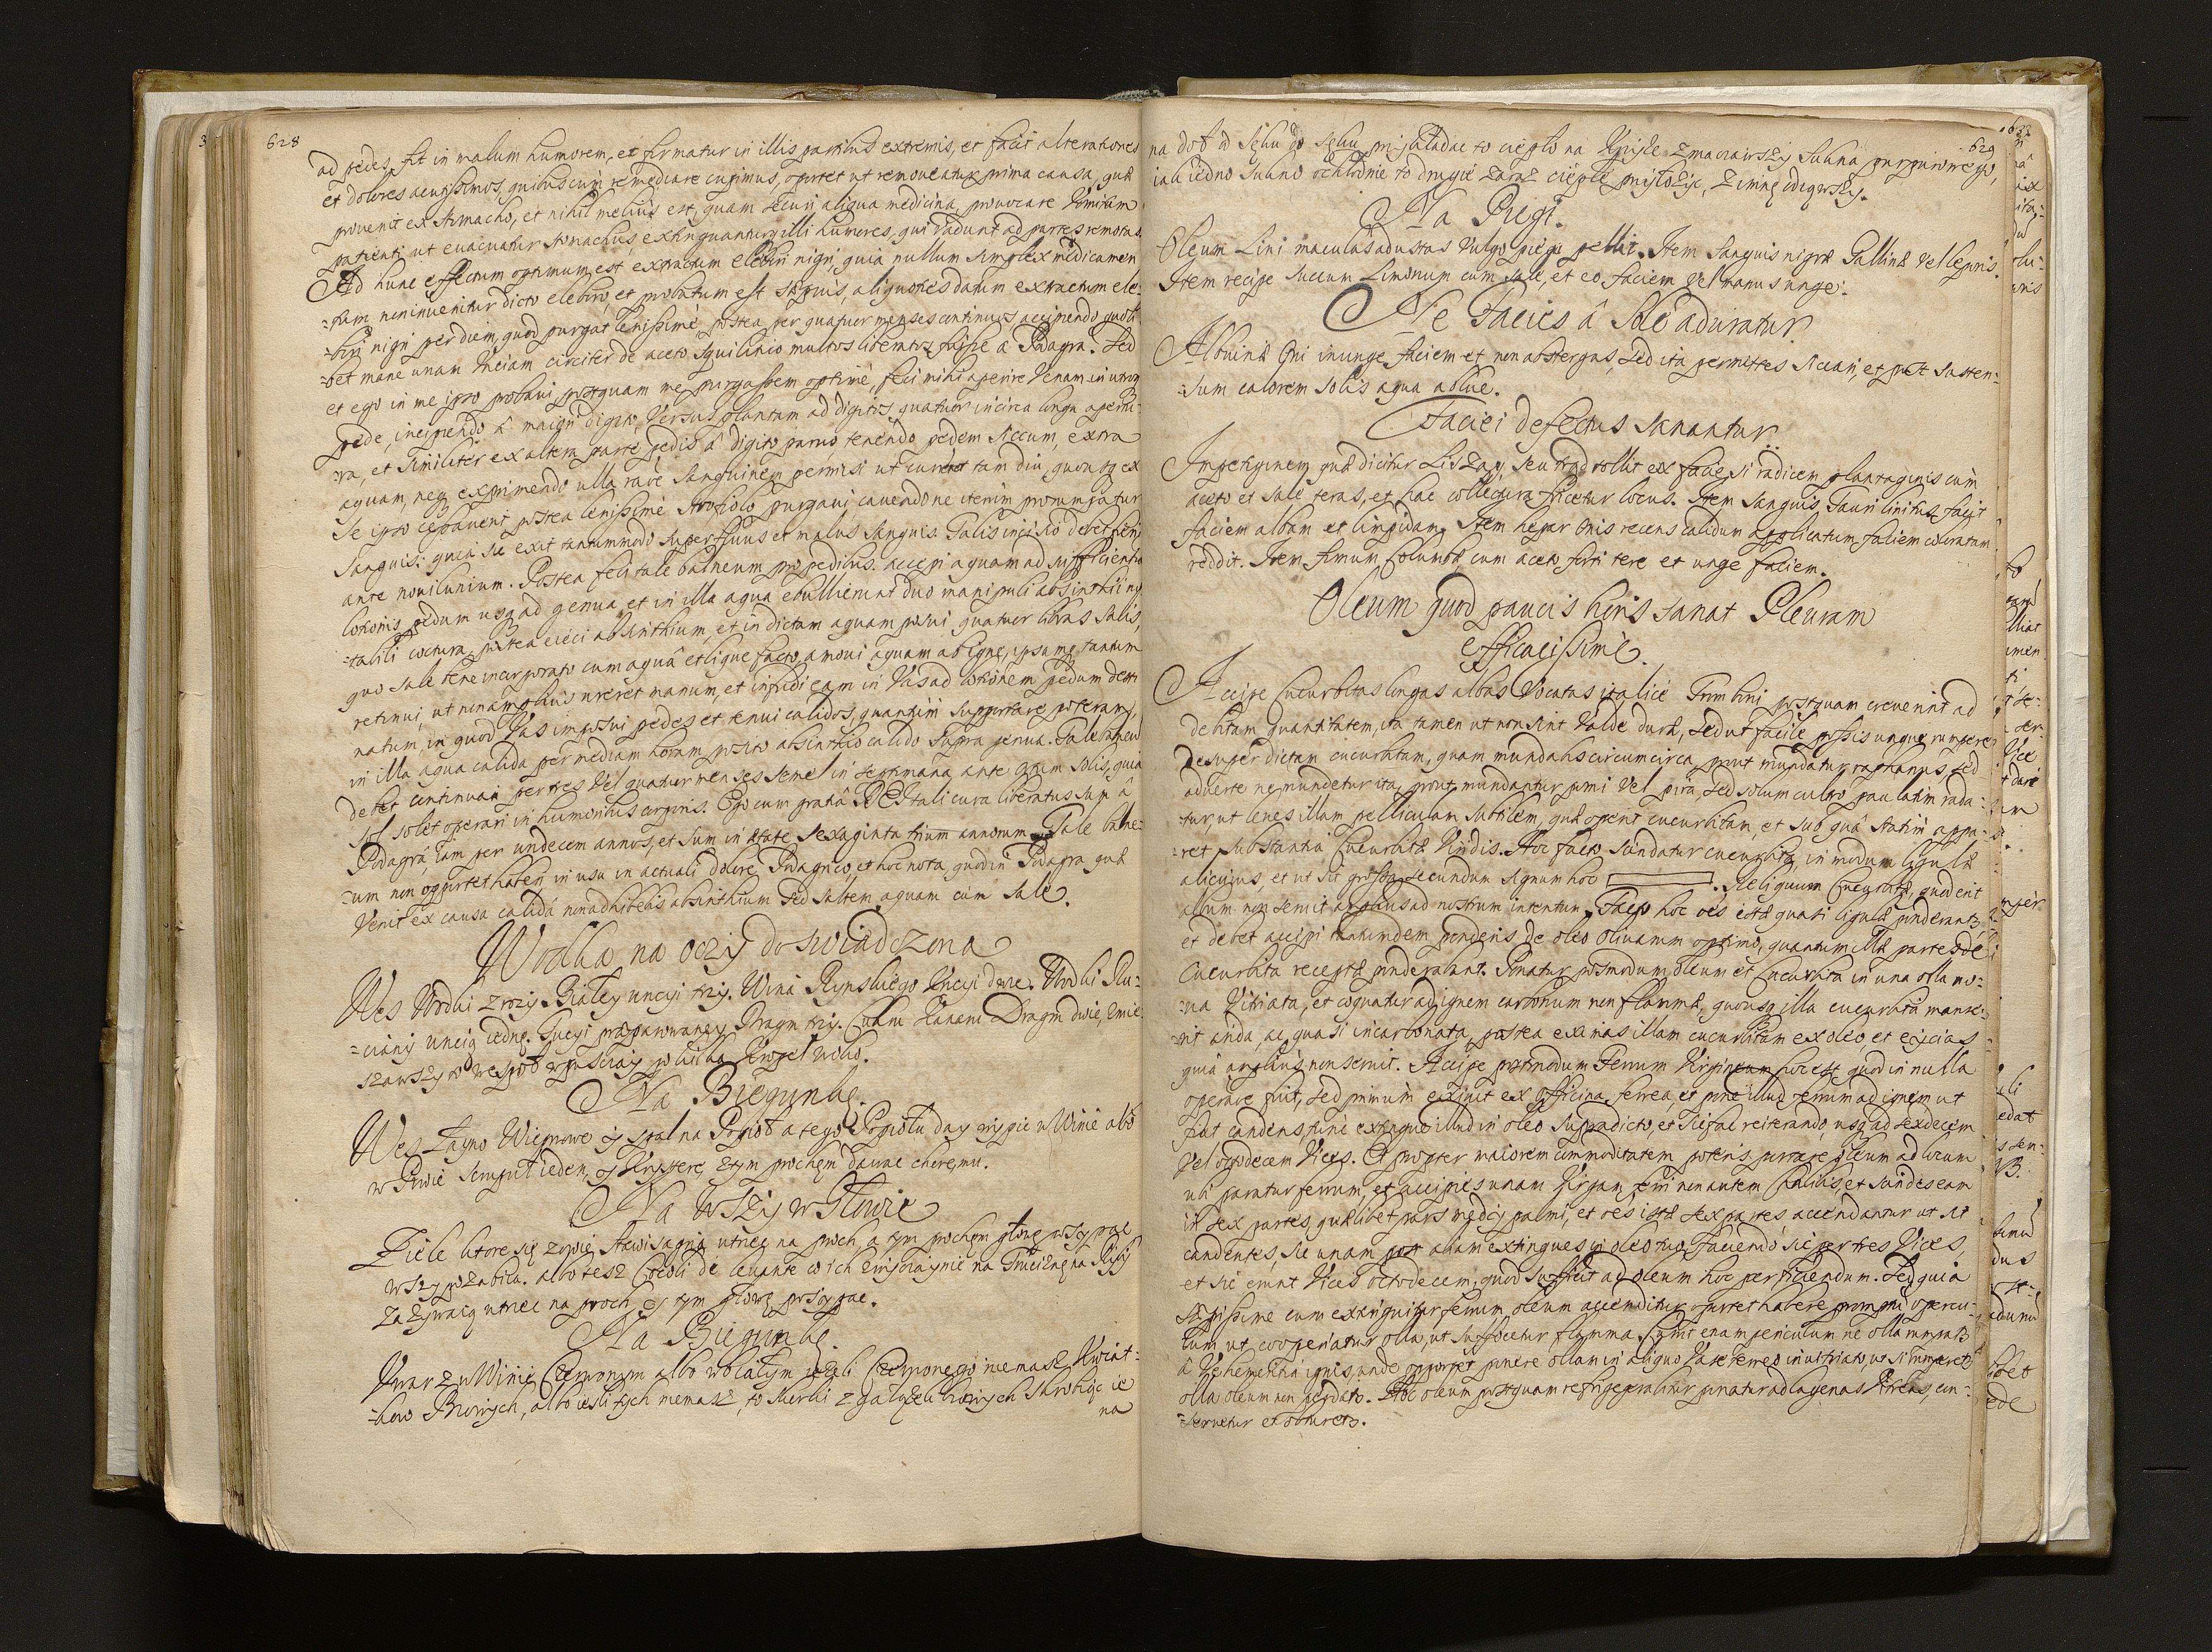 628
ad pedes, fit in malum humorem, et firmatur in illis partibus extremis, et facit alterationes
et dolores acutissimos, quibus cum remediare cupimus, oportet ut remoueatur prima causa, quæ
prouenit ex stomacho, et nihil melius est, quam secura aliqua medicina prouocare vomitum
patienti ut euacuatur stomachus extinguantur illi humores, qui vadunt ad partes remotas.
Ad hunc effectum optimum est extractum elebori nigri, quia nullum simplex medicamen
-tum non inuenitur dicto eleboro, et probatum est sæpius, aliquoties datum extractum ele-
-bori nigri per diem, quod purgat lenissime, postea per quatuor menses continuos accipiendo quoli-
-bet mane unam Unciam circiter de aceto squilitico multos liberatos fuisse a Podagra. Sed
et ego in me ipso probaui, postquam me purgassem optime, feci mihi aperire Venam in utroq
pede, incipiendo à maiori digito, versus plantam ad digitos quatuor in circa longa apertu-
-ra, et similiter ex altera parte pedis à digito paruo, tenendo pedem siccum, extra
aquam, neq exprimendo ulla rare sanguinem permisi ut curreret tam diu, quousq ex
se ipso cessauerit, postea lenissime purgaui, cauendo ne iterum prorumpatur
Sanguis: quia sic exit tantummodo superfluus et malus sanguis. Talis incisio debet fieri
ante nouilunium. Postea feci tale balneum pro pedibus. accepi aquam ad sufficientiam
lotionis pedum usq ad genua, et in illa aqua ebullierunt duo manipuli absinthii
coctura, postea eieci absinthium, et in dictam aquam posui quatuor libras salis,
quo sale bene incorporato cum aquâ et liquefacto, amoui aquam ab igne, ipsamq tantum
retinui, ut non amplius ureret manum, et infudi eam in Vas ad lotionem pedum desti
natum, in quod Vas imposui pedes et tenui calidos, quantum supportare poteram,
in illa aqua calida per mediam horam, posito absinthio calido supra genua. Tale balneu
debet continuari per tres vel quatuor menses semel in septimana ante ortum solis, quia
sol solet operari in humoribus corporis. Ego cum gratiâ DEI tali cura liberatus sum à
Podagrâ, iam per undecem annos, et sum in ætate sexaginta trium annorum. Tale balne-
-um non oportet haberi in usu in actuali dolore Podagrico, et hoc nota, quod in Podagra quæ
Venit ex causa calidâ non adhibebis absinthium sed saltem aquam cum sale.
Wodka na oczy doswiadczona
Wes Wodki z rozy Białey uncyi trzy. Wina Rynskiego Uncyi dwie. Wodki Ru-
-ciany uncią iednę. Tucyi præparowaney Dragm trzy. Cukru Kanaru Dragm dwie, zmie
szawszy to wespoł wpusczay po kilka Kropel w oko.
Na Biegunkę.
Wes Łayno Wieprzowe y spal na Popioł a tego Popiołu day wypic w Winie albo
w Piwie scrupuł ieden, y Krysterę z tym prochem dawac choremu.
Na wszy w Głowie
Ziele ktore się zowie Stavisagria utrzec na proch a tym prochem głowę wsypac
wszy pozabiia. albo tesz Cocoli de leuante co ich na Trucizne na Ryby
zazywaią utrzec na proch y tym głowę wsypac.
Na Biegunkę.
Uwarz w Winie Czerwonym albo w białym iezeli Czerwonego nie masz Kwiat-
-kow , albo iesli tych niemasz, to skorki z skrob ie
na
629
na doł od Sęku do Sęku przykładac to ciepło na Krzyze zmaczawszy Sukna purpurowego,
iak iedno Sukno ochłodnie to drugie zaraz ciepłe przyłozyc, zimnę odiąwszy.
Na Piegi.
Oleum Lini maculas adustas vulgo piegi pellit. Item Sanguis nigræ Gallinæ vel leporis.
Item recipe succum Limonum cum sale, et eo faciem vel manus unge.
Ne Facies â Sole aduratur.
Albumine Oui inunge faciem et non abstergas, sed ita permittes siccari, et post susten-
-sum calorem solis aqua ablue.
Faciei defectus Sanantur.
Impetiginem quæ dicitur Liszay, tollit ex facie si radicem plantaginis cum
aceto et sale teras, et hac locus. Item Sanguis Tauri linitus facit
faciem albam et limpidam. Item hepar Ouis recens calidum applicatum faciem coloratam
reddit. Item fimum Columbæ cum aceto forti tere et unge faciem.
Oleum quod paucis horis sanat Pleuram
efficacissimè.
Accipe Cucurbitas longas albas Vocatas italicè Trombini postquam creuerint ad
debitam quantitatem, ita tamen ut non sint valde duræ, sed ut facile possis ungue rumpere
desuper dictam cucurbitam, quam mundabis circumcirca, prout mundatur raphanus, sed
aduerte ne mundetur ita prout mundantur pomi vel pira, sed solum cultro paulatim rada-
tur, ut leues illam pelliculam subtilem, quæ operit cucurbitam, et sub quâ statim appa-
-ret substantia Cucurbitæ Viridis. Hoc facto scindatur cucurbita in modum ligulæ
alicuius, et ut sit grossa secundum signum hoc . Reliquum Cucurbitæ, quod erit
album non seruit amplius ad nostrum intentum. Facto hoc oes istæ quasi ligulæ ponderantur,
et debet accipi tantundem ponderis de oleo oliuarum optimo, quantum illæ partes de
Cucurbita receptæ ponderabant. Ponatur postmodum oleum et Cucurbita in una olla no-
-ua Vitriata, et coquatur ad ignem carbonum non flammæ, quousq illa cucurbita manse-
-rit arida, ac quasi incarbonata, postea eximas illam cucurbitam ex oleo, et eijcias
quia amplius non seruit. Accipe postmodum Ferrum Virgineum hoc est quod in nulla
opera fuit, sed primum exijuit ex officina ferrea, et pone illud ferrum ad ignem ut
fiat candens, tunc extingue illud in oleo supradicto, et sic fac reiterando, usq ad sexdecem
vel octodecem Vices. Et propter maiorem commoditatem poteris portare oleum ad locum
ubi paratur ferrum, et accipies unam Virgam ferri non autem Chalibis, et scindes eam
in sex partes, quælibet pars palmi, et oes istæ sex partes accendantur ut sit
candentes, sic unam post aliam extingues in oleo tuo, faciendo sic per tres Vices,
et sic erunt Vices octodecem, quod sufficit ad oleum hoc perficiendum. Sed quia
sæpissime cum extinguitur ferrum, oleum accenditur, oportet habere promptum opercu-
lum, ut cooperiatur olla, ut suffocetur flamma. Currit etiam periculum ne olla rumpatur
à Vehementia ignis, unde oportet ponere ollam in aliquo Vase terreo ut si rumperetur
olla oleum non perdatur. Hoc oleum postquam refrigerabitur ponatur ad lagenas Vitreas, con-
-seruetur et obturetur.